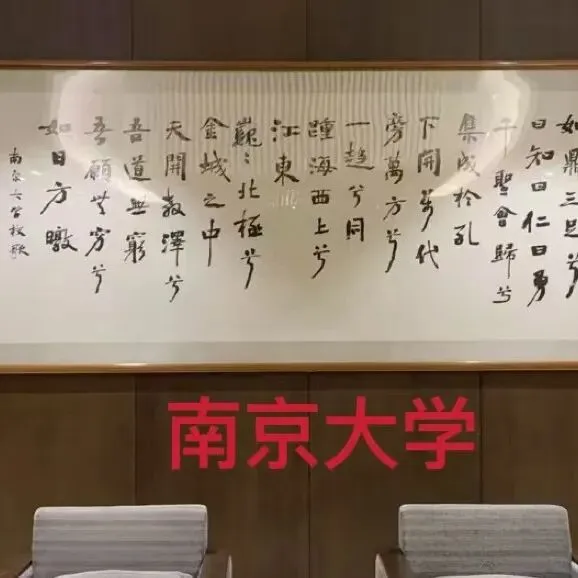 如鼎三足兮
曰知曰仁曰勇
千聖會歸兮
集成於孔
下開萬代
旁萬方兮
一趨兮同
踵海西上兮
江東
巍〻北極兮
金城之中
天開教澤兮
吾道無窮
吾願無窮兮
如日方暾
南京大學校歌
南京大学